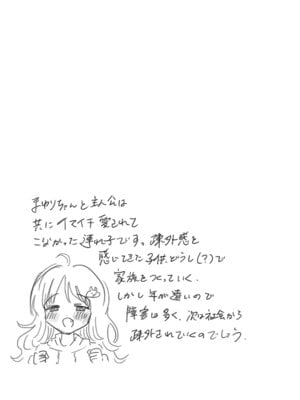 まゆりちゃんと主人公は
共にイマイチ愛されて
こなかった連れ子です。疎外感を
感じてきた子供どうし(?)で
家族をつくっていく。
しかし年が遠いので
障害は多く、次は社会から
疎外されていくのでしょう。